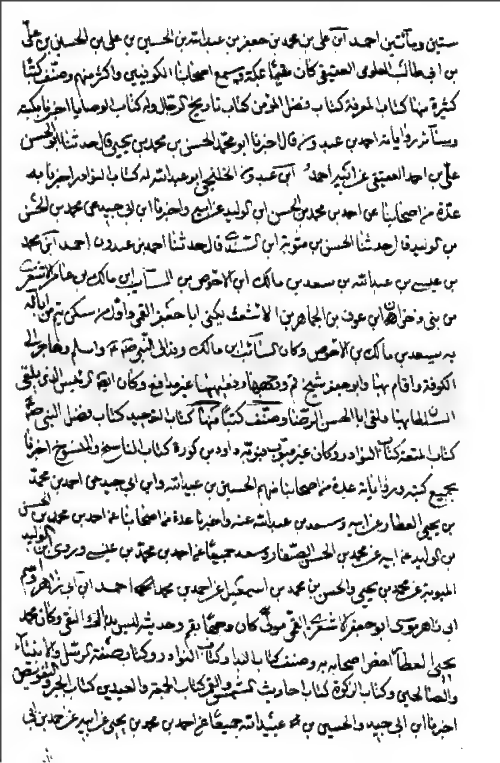 ستين ومأتين احمد ابن علي بن محمد بن جعفر بن عبدالله بن الحسين بن علي بن الحسين بن علي
بن ابي طالب العلوي العقيقي كان مقيما بمكة وسمع اصحابنا الكوفيين واكثر منهم وصنف كتبا
كثيرة منها كتاب المعرفة كتاب فضل المؤمن كتاب تاريخ الرجال وله كتاب الوصايا اخبرنا بكتبه
وسائر رواياته احمد بن عبدون قال اخبرنا ابو محمد الحسن بن محمد بن يحيى قال حدثنا ابو الحسن
علي بن احمد العقيقي عن ابيه احمد ابن عبدوس الخلنجي ابو عبدالله له كتاب النوادر اخبرنا به
عدة من اصحابنا عن احمد بن محمد بن الحسن ابن الوليد عن ابيه واخبرنا ابن ابي جيد عن محمد بن الحسن
بن الوليد قال حدثنا الحسن بن متوية ابن السندي قال حدثنا احمد بن عبدوس احمد ابن محمد
بن عيسى بن عبدالله بن سعد بن مالك ابن الاحوص بن السائب ابن مالك بن عامر الاشعري
من بني ذخران ابن عوف بن الجماهر بن الاشعث يكنى ابا جعفر القمي واول من سكن قم من ابائه
به سعد بن مالك بن الاحوص وكان السائب بن مالك وفد الى النبي واسلم وهاجر الى
الكوفة واقام بها وابو جعفر شيخ قم ووجهها وفقيهها غير مدافع وكان ايضا الرئيس الذي يلقى
السلطان بها ولقي ابا الحسن الرضا وصنف كتبا منها كتاب التوحيد كتاب فضل النبي
كتاب المتعة كتاب النوادر وكان غير مبوب فبوبه داود بن كورة كتاب الناسخ والمنسوخ اخبرنا
بجميع كتبه ورواياته عدة من اصحابنا منهم الحسين بن عبيدالله وابن ابي جيد عن احمد بن محمد
بن يحيى العطار عن ابيه وسعد بن عبدالله عنه واخبرنا عدة من اصحابنا عن احمد بن محمد بن الحسن
بن الوليد عن ابيه عن محمد بن الحسن الصفار وسعد جميعا عن احمد بن محمد بن عيسى وروى ابن الوليد
المبوبة عن محمد بن يحيى والحسن بن محمد بن اسمعيل عن احمد بن محمد احمد ابن ابي زاهر واسم
ابي زاهر موسى ابو جعفر الاشعري القمي مولى كان وجها بقم وحديثه ليس بذلك النقي وكان محمد
يحيى العطار اخص اصحابه به وصنف كتبا البداء وكتاب النوادر وكتاب صفة الرسل والانبياء
والصالحين وكتاب الزكوة كتاب احاديث الشمس والقمر كتاب الجمعة والعيدين كتاب الجبر والتفويض
اخبرنا ابن ابي جيد والحسين بن عبيدالله جميعا عن احمد بن محمد بن يحيى عن ابيه عن احمد بن ابي